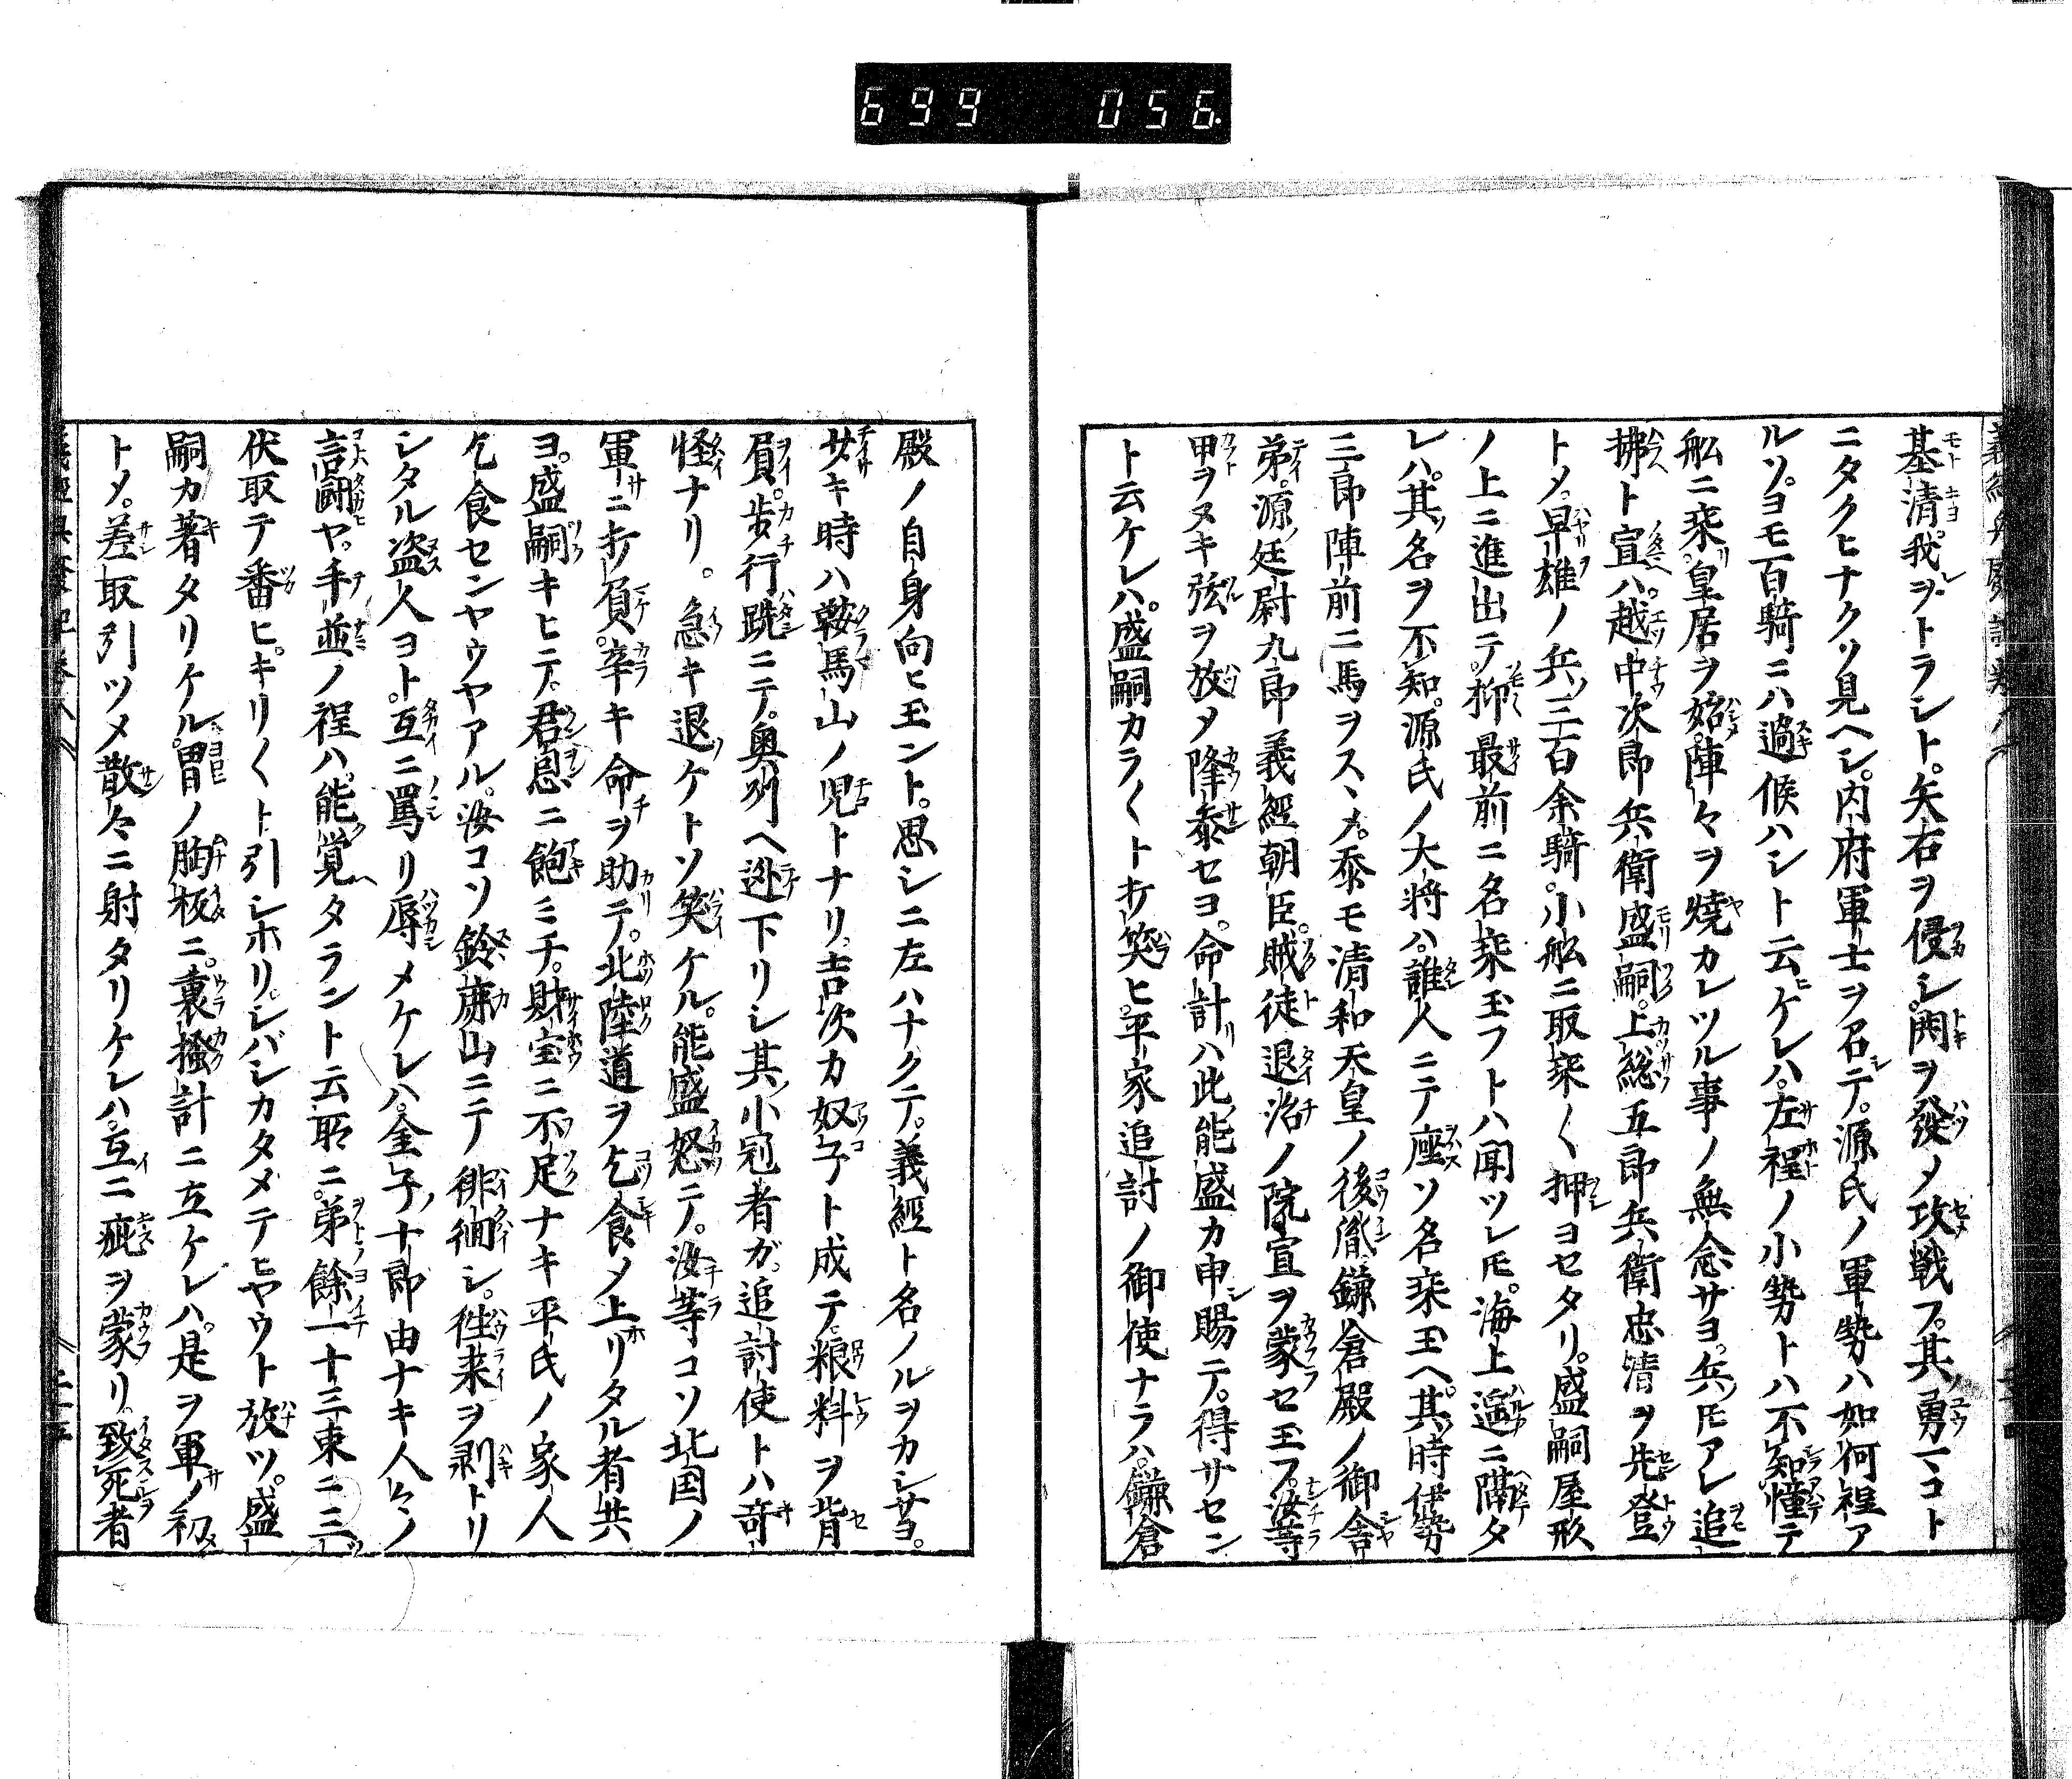 699 056.
基清我ヲトラシト。矢右ヲ侵シ。鬨ヲ發メ攻戦フ。其勇マコト
ニタクヒナクソ見ヘシ。内府軍士ヲ召テ。源氏ノ軍勢ハ如何程ア
ルソ。ヨモ一百騎ニハ過候ハシト云ケレハ。左程ノ小勢トハ不知憧テ
舩ニ乘。皇居ヲ始。陣々ヲ燒カレツル事ノ無念サヨ。兵𪜈アレ追
拂ト宣ハ。越中次郎兵衛盛嗣。上総五郎兵衛忠清ヲ先登
トメ。早雄ノ兵三百余騎。小舩ニ取乘く押ヨセタリ。盛嗣屋形
ノ上ニ進出テ。抑最前ニ名乘玉フトハ聞ツレ𪜈。海上遥ニ隔タ
レハ。其名ヲ不知。源氏ノ大将ハ。誰人ニテ座ソ名乘玉ヘ。其時伊勢
三郎陣前ニ馬ヲスヽメ。忝モ清和天皇ノ後胤鎌倉殿ノ御舎
弟。源廷尉九郎義經朝臣。賊徒退治ノ院宣ヲ蒙セ玉フ。汝等
甲ヲヌキ弦ヲ放メ降参セヨ。命計ハ此能盛カ申賜テ。得サセン
ト云ケレハ。盛嗣カラくト打笑ヒ。平家追討ノ御使ナラハ。鎌倉
殿ノ自身向ヒ玉ント。思シニ左ハナクテ。義經ト名ノルヲカシサヨ。
サキ時ハ鞍馬山ノ児トナリ。吉次カ奴子ト成テ。粮料ヲ背
負。歩行跣ニテ。奥列へ迯下リシ其小冠者ガ。追討使トハ奇
怪ナリ。急キ退ケトソ笑ケル。能盛怒テ。汝等コソ北国ノ
軍ニ打負。辛キ命ヲ助テ。北陸道ヲ乞食メ上リタル者共
ヨ。盛嗣キヒテ。君恩ニ飽ミチ。財宝ニ不足ナキ平氏ノ家人
乞食センヤウヤアル。汝コソ鈴鹿山ニテ徘徊シ。徃来ヲ剥トリ
シタル盗人ヨト。互ニ罵リ辱メケレハ。金子十郎由ナキ人々ノ
言鬪ヤ。手並ノ程ハ。能覚タラント云耶ニ。弟餘一十三束ニ三
伏取テ番ヒ。キリくト引シホリ。シバシカタメテヒヤウト放ツ。盛
嗣カ著タリケル。冑ノ胸板ニ。裏掻計ニ立ケレハ。是ヲ軍ノ初
トメ。差取引ツメ散々ニ射タリケレハ。互ニ疵ヲ蒙リ。致死者